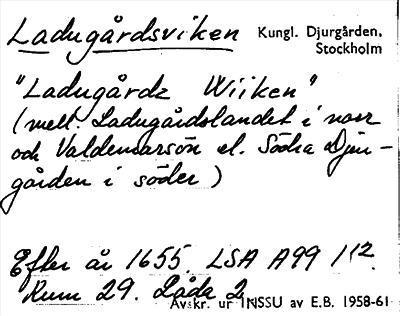 Ladugårdsviken Kungl. Djurgården,
Stockholm
"Ladugårdz Wiiken"
(mell. Ladugårdslandet i norr
och Valdemarsön el. Södra Djur-
gården i söder)
Efter år 1655. LSA A99 1/2.
Rum 29. Låda 2
Avskr. ur INSSU av E.B. 1958-61